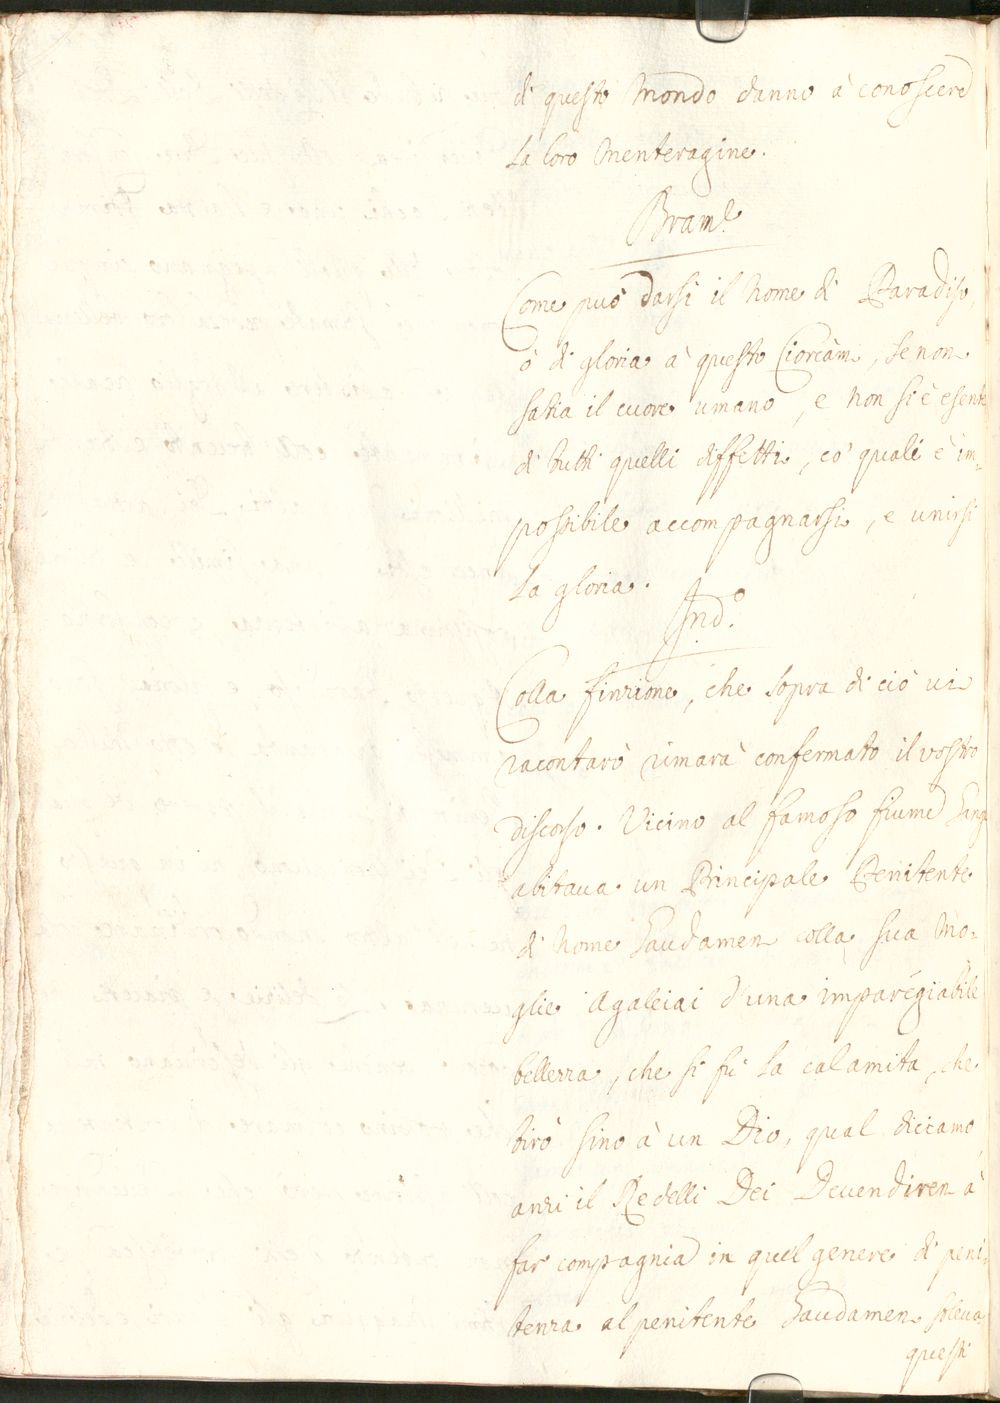 di questo Mondo danno à conoscere
la loro menteragine.
Bram.e
Come può darsi il nome di Paradiso,
ò di gloria à questo Ciorcàm, se non
satia il cuore umano, e non si è esente
di tutti quelli diffetti, co' quali è im=
possibile accompagnarsi, e unirsi
la gloria.
Ind.o
Colla finzione, che sopra di ciò vi
racontarò rimarà confermato il vostro
discorso. Vicino al famoso fiume Gang
abitava un Principale Penitente
di nome Gaudamen colla sua Mo=
glie Agaleiai d'una imparegiabile
bellezza, che si fù la calamita, che
tirò sino à un Dio, qual diciamo,
anzi il Re delli Dei Devendiren à
far compagnia in quel genere di peni=
tenza al penitente Gaudamen. soleva
questi